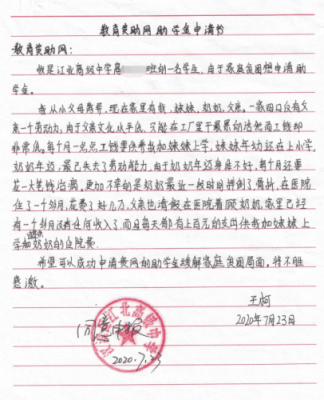 教育资助网助学金申请书
教育资助网：
我是江北高级中学高 班的一名学生，由于家庭贫困想申请助
学金。
我从小父母离异，现在家里有我，妹妹，奶奶，父亲。一家四口仅有父
亲一个劳动力，由于父亲文化水平低，只能在工厂里干最累的活他而工钱却
非常低。每个月一点点工钱要供我和妹妹上学，妹妹年幼还在上小学，
奶奶年迈，最已失去了劳动能力，由于奶奶年迈身体不好，每个月还要
花一大笔钱治病，更加不幸的是奶奶最近一段时间摔到了骨折，在医院
住了一个多月，花费了好几万，父亲也请假在医院看顾奶奶，家里已经
有一个月没有任何收入了，而且每天都有上百元的支出供我和妹妹上
学和奶奶的住院费。
希望可以成功申请贵网的助学金缓解家庭贫困局面，将不胜
感激。
王柯
2020年7月23日
江北高级中学
2020.7.23